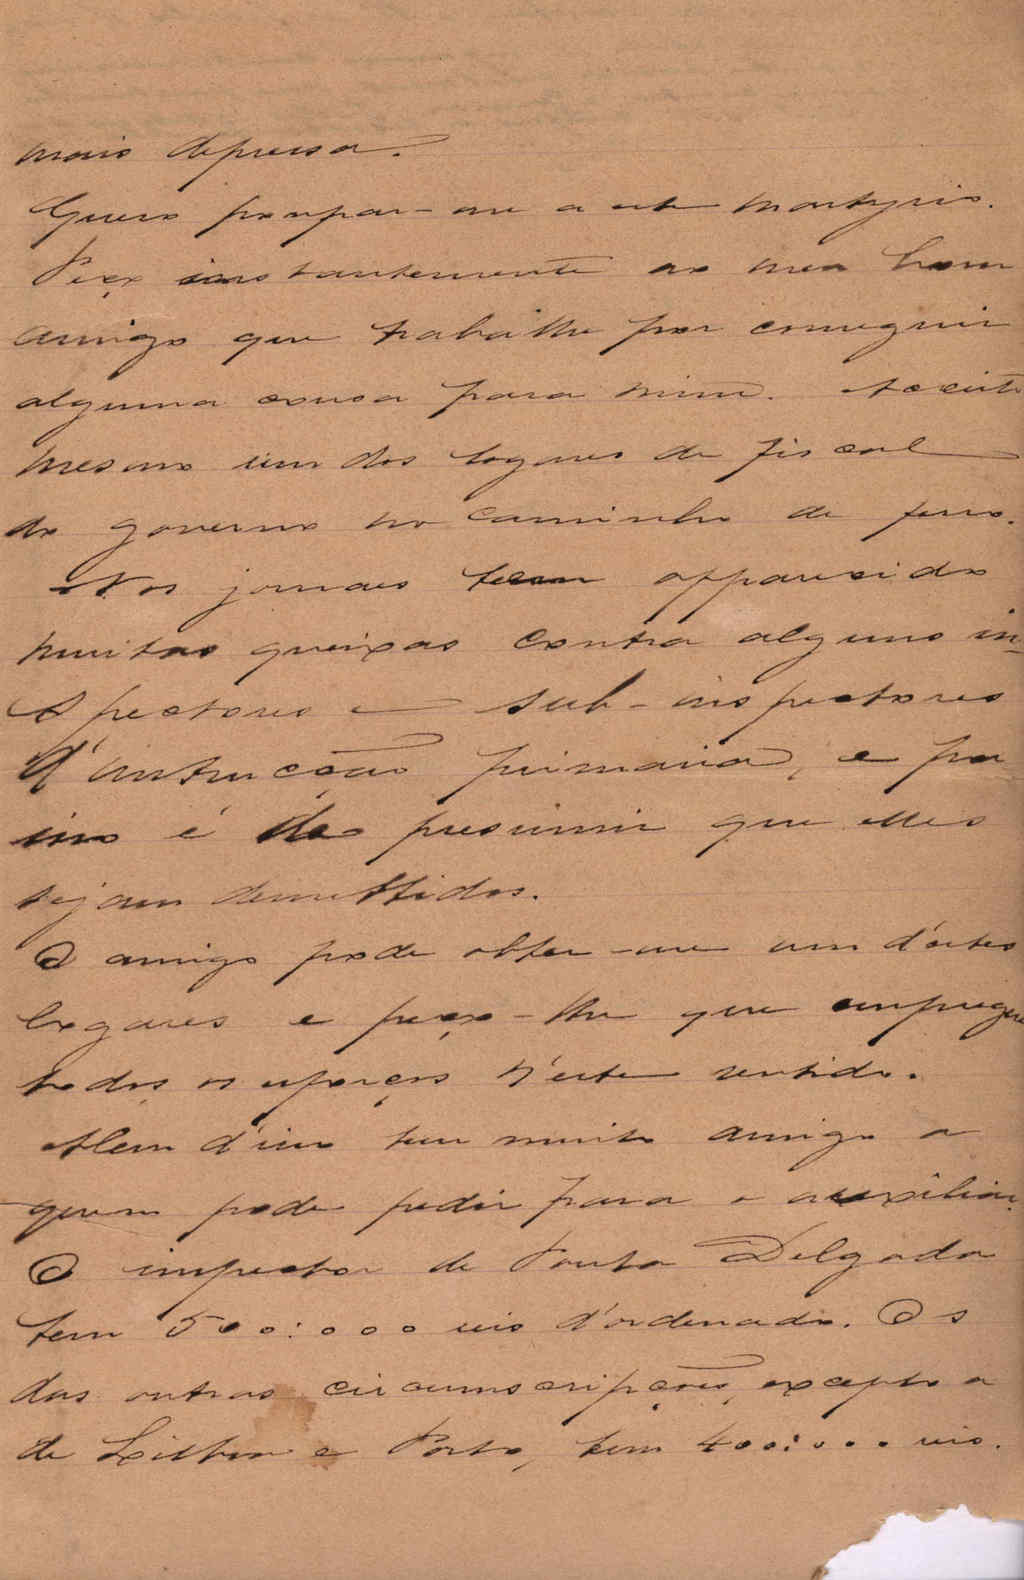 mais depressa.
Quero poupar-me a este martyrio.
Peço instantemente ao meu bom
amigo que trabalhe por conseguir
alguma cousa para mim. Acceito
mesmo um dos logares de fiscal
do governo no caminho de ferro.
Nos jornaes teem apparecido
muitas queixas contra alguns in-
spectores e sub-inspectores
d'instrucção primaria, e por
isso é de presumir que elles
sejam demittidos.
O amigo pode obter-me um d'estes
logares e peço-lhe que empregue
todos os esforços n'este sentido.
Alem d'isso tem muito amigo a
quem pode pedir para o auxiliar.
O inspector de Ponta Delgada
tem 500:000 reis d'ordenado. Os
das outras circumscripções, excepto a
de Lisboa e Porto, tem 400:000 reis.